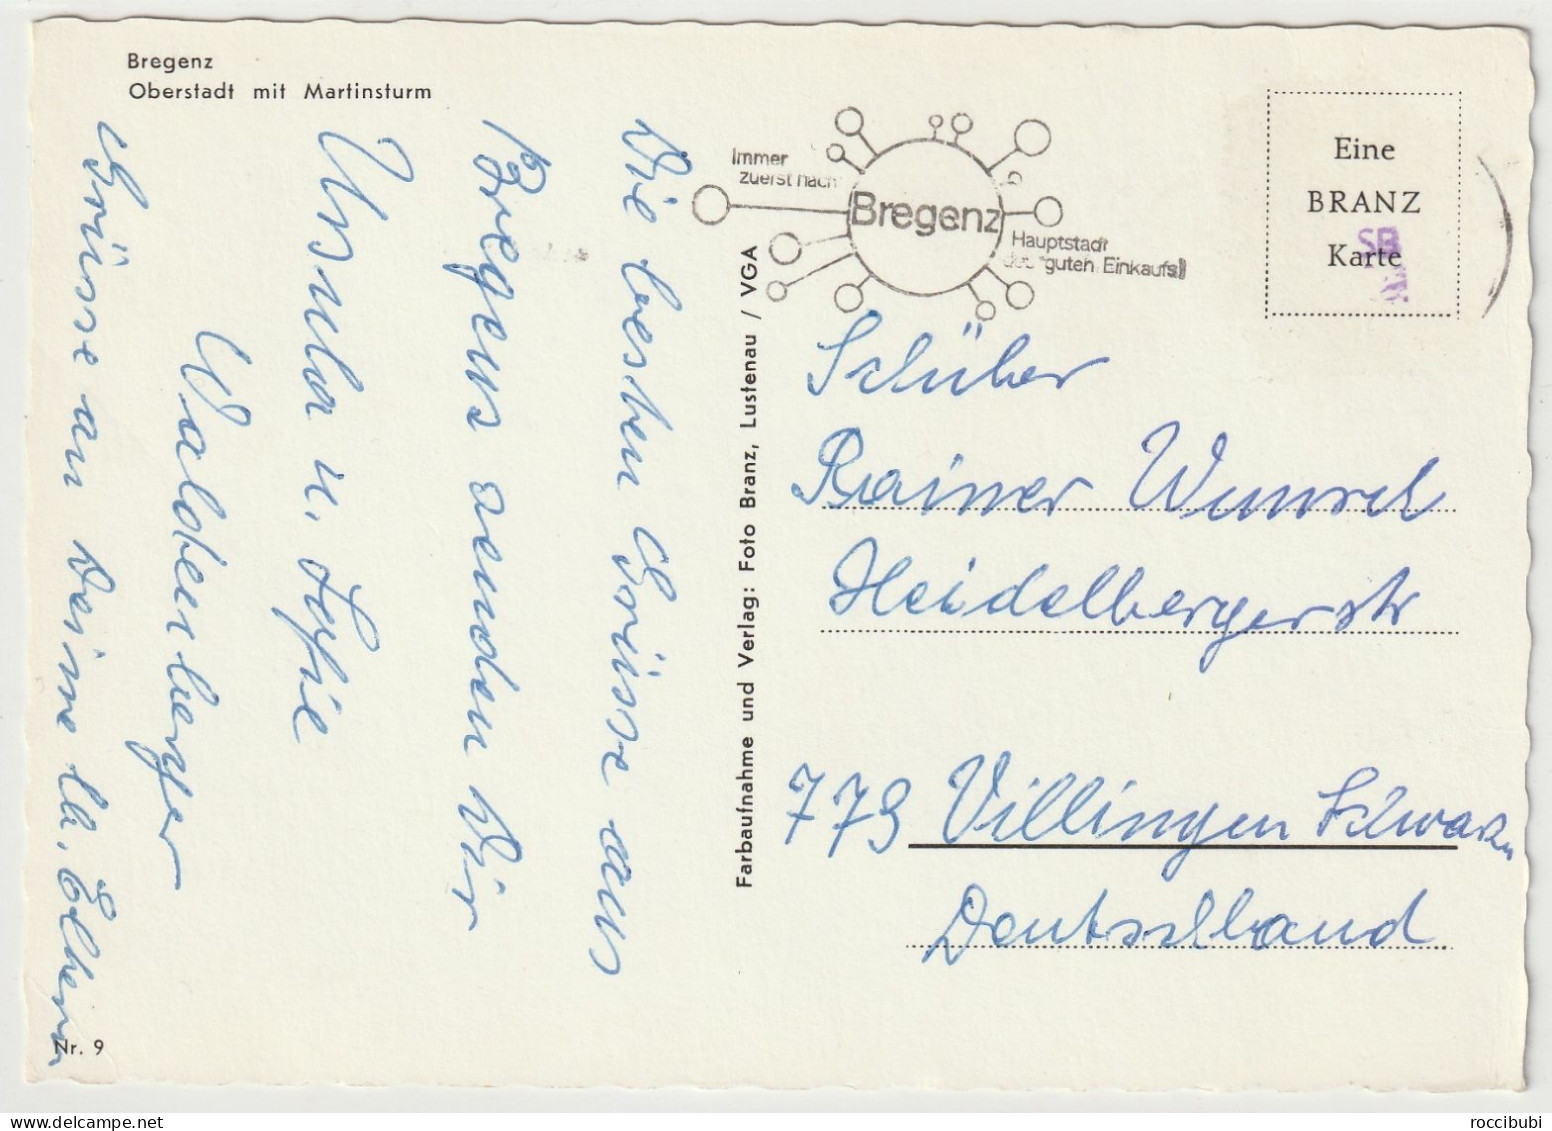 Bregenz
Oberstadt mit Martinsturm
Die besten Grüsse aus
Bregens senden Dir
Ursula u. Sofie
Waldenberger
Grüsse an Deine lb. Eltern
Nr. 9
Farbaufnahme und Verlag: Foto Branz, Lustenau / VGA
Immer
zuerst nach
Bregenz
Hauptstadt
des guten Einkaufs!
Eine
BRANZ
Karte
SB
Schüler
Rainer Wunsch
Heidelbergerstr
779 Villingen Schwarzw
Deutschland
roccibubi